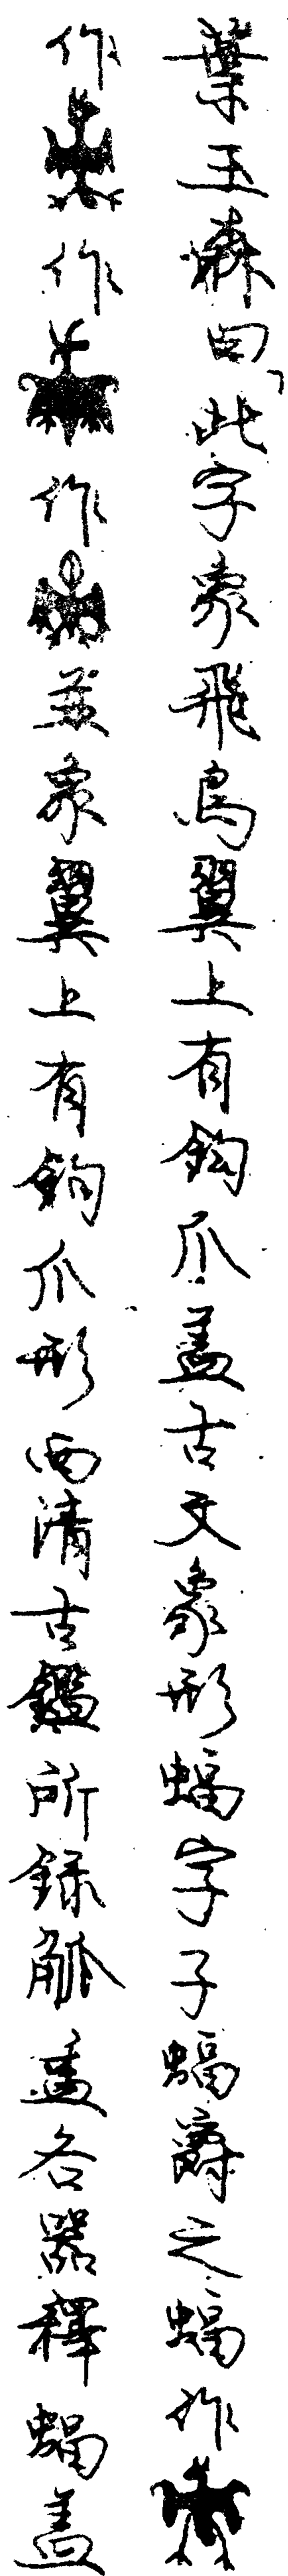 葉玉森曰此字象飛鳥翼上有鈎爪蓋古文象形蝠字子蝠爵之蝠作
作作作並象翼上有鈎爪形西清古鑑所録觚盉各器釋蝠蓋